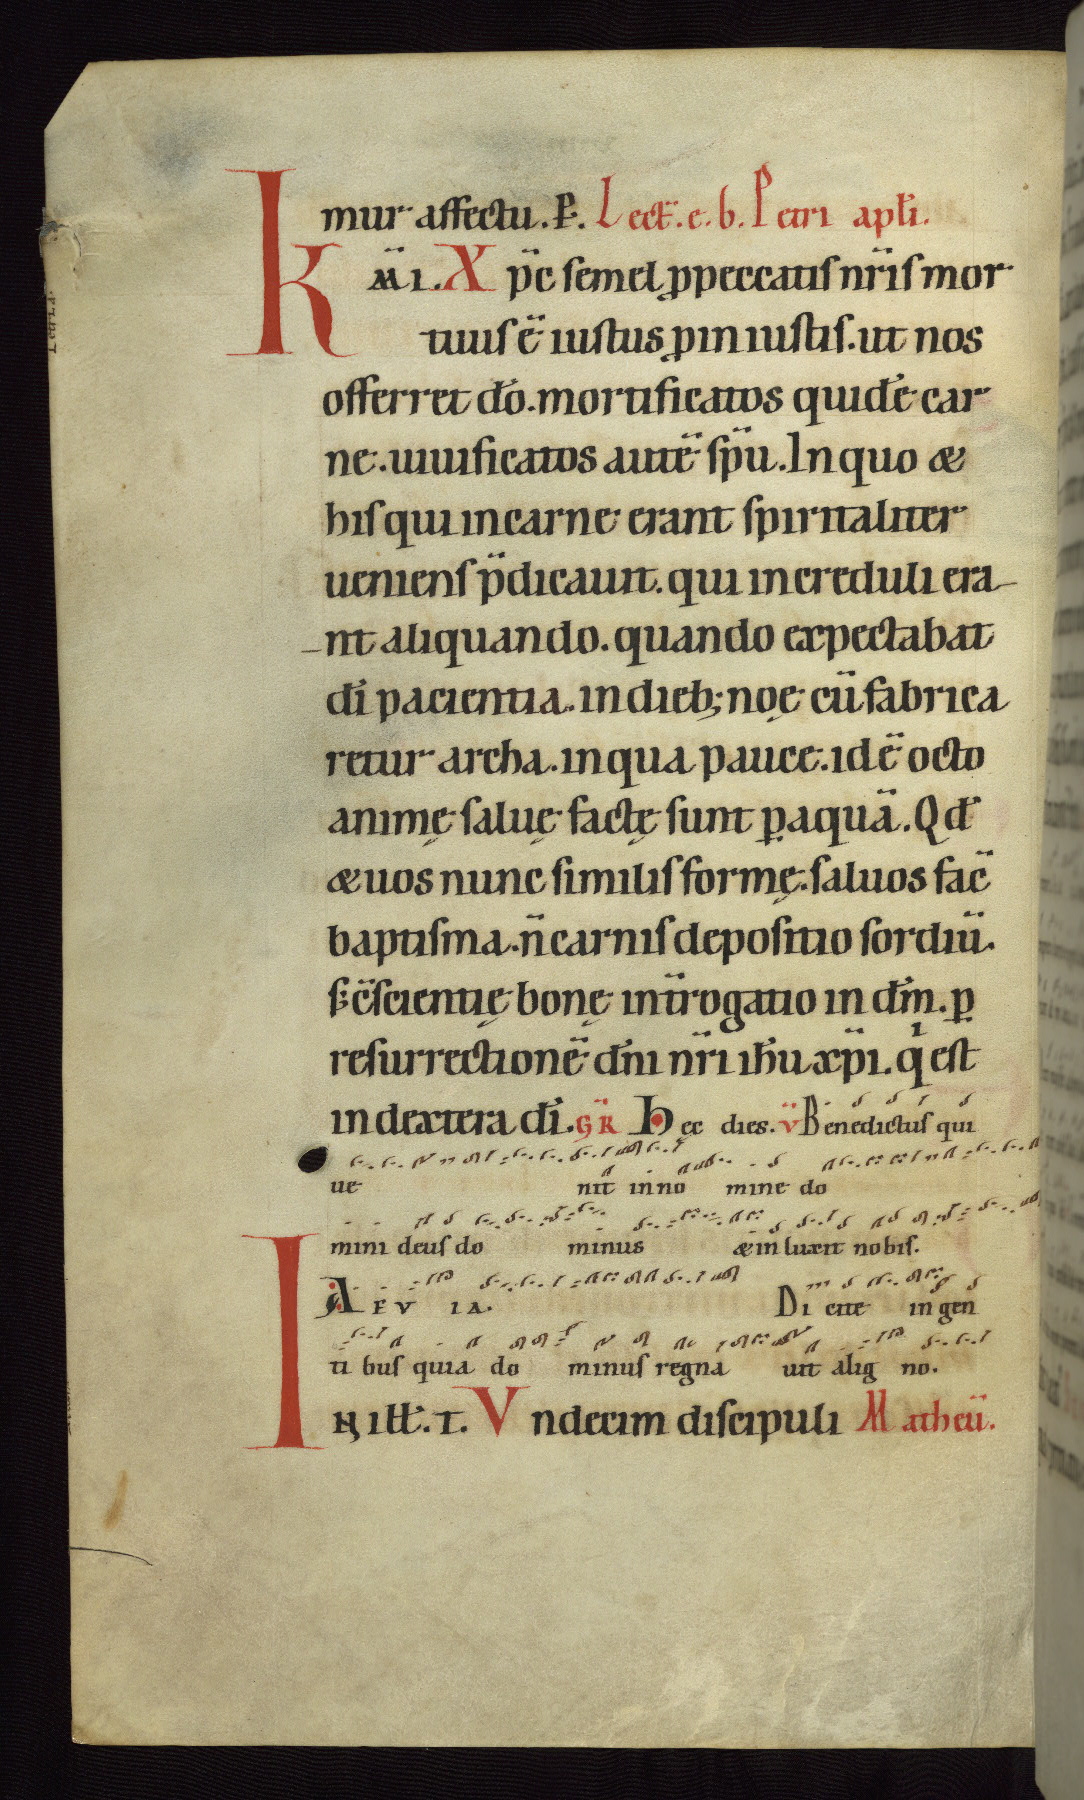 mur affectu. P̄. Lect̄. e. b. Petri apl̄i.
Km̄i. Xp̄c semel ꝓ peccatis nr̄is mor
tuus ē iustus ꝓ iniustis. ut nos
offerret dō. mortificatos quidē car
ne. uiuificatos autē sp̄u. In quo &
his qui in carne erant spiritaliter
ueniens p̄dicauit. qui increduli era
nt aliquando. quando expectabat
dī pacientia. in dieb; noę cū fabrica
retur archa. in qua pauce. idē octo
animę saluę factę sunt ꝑ aquā. Qd̄
& uos nunc similis formę. saluos fac̄
baptisma. n̄ carnis depositio sordiū.
s; c̄scientię bonę int̄rogatio in dm̄. ꝑ
resurrectionē dn̄i nr̄i ih̄u xp̄i. qⁱ est
in dextera dī. GR̄ Hęc dies. v̄ Benedictus qui
ue nit in no mine do
mini deus do minus & in luxit nobis.
AEVIA. Dicite in gen
ti bus quia do minus regna uit alig no.
IN ill̄. T. Undecim discipuli Matheū.